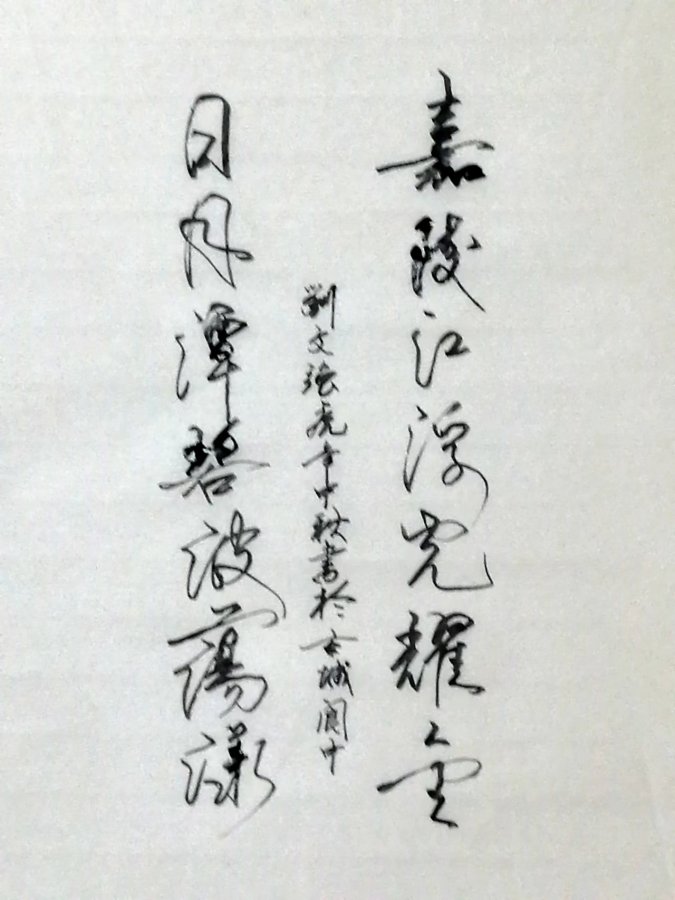 嘉陵江浮光耀金
日月潭碧波蕩漾
劉文強虎年中秋書於古城閬中